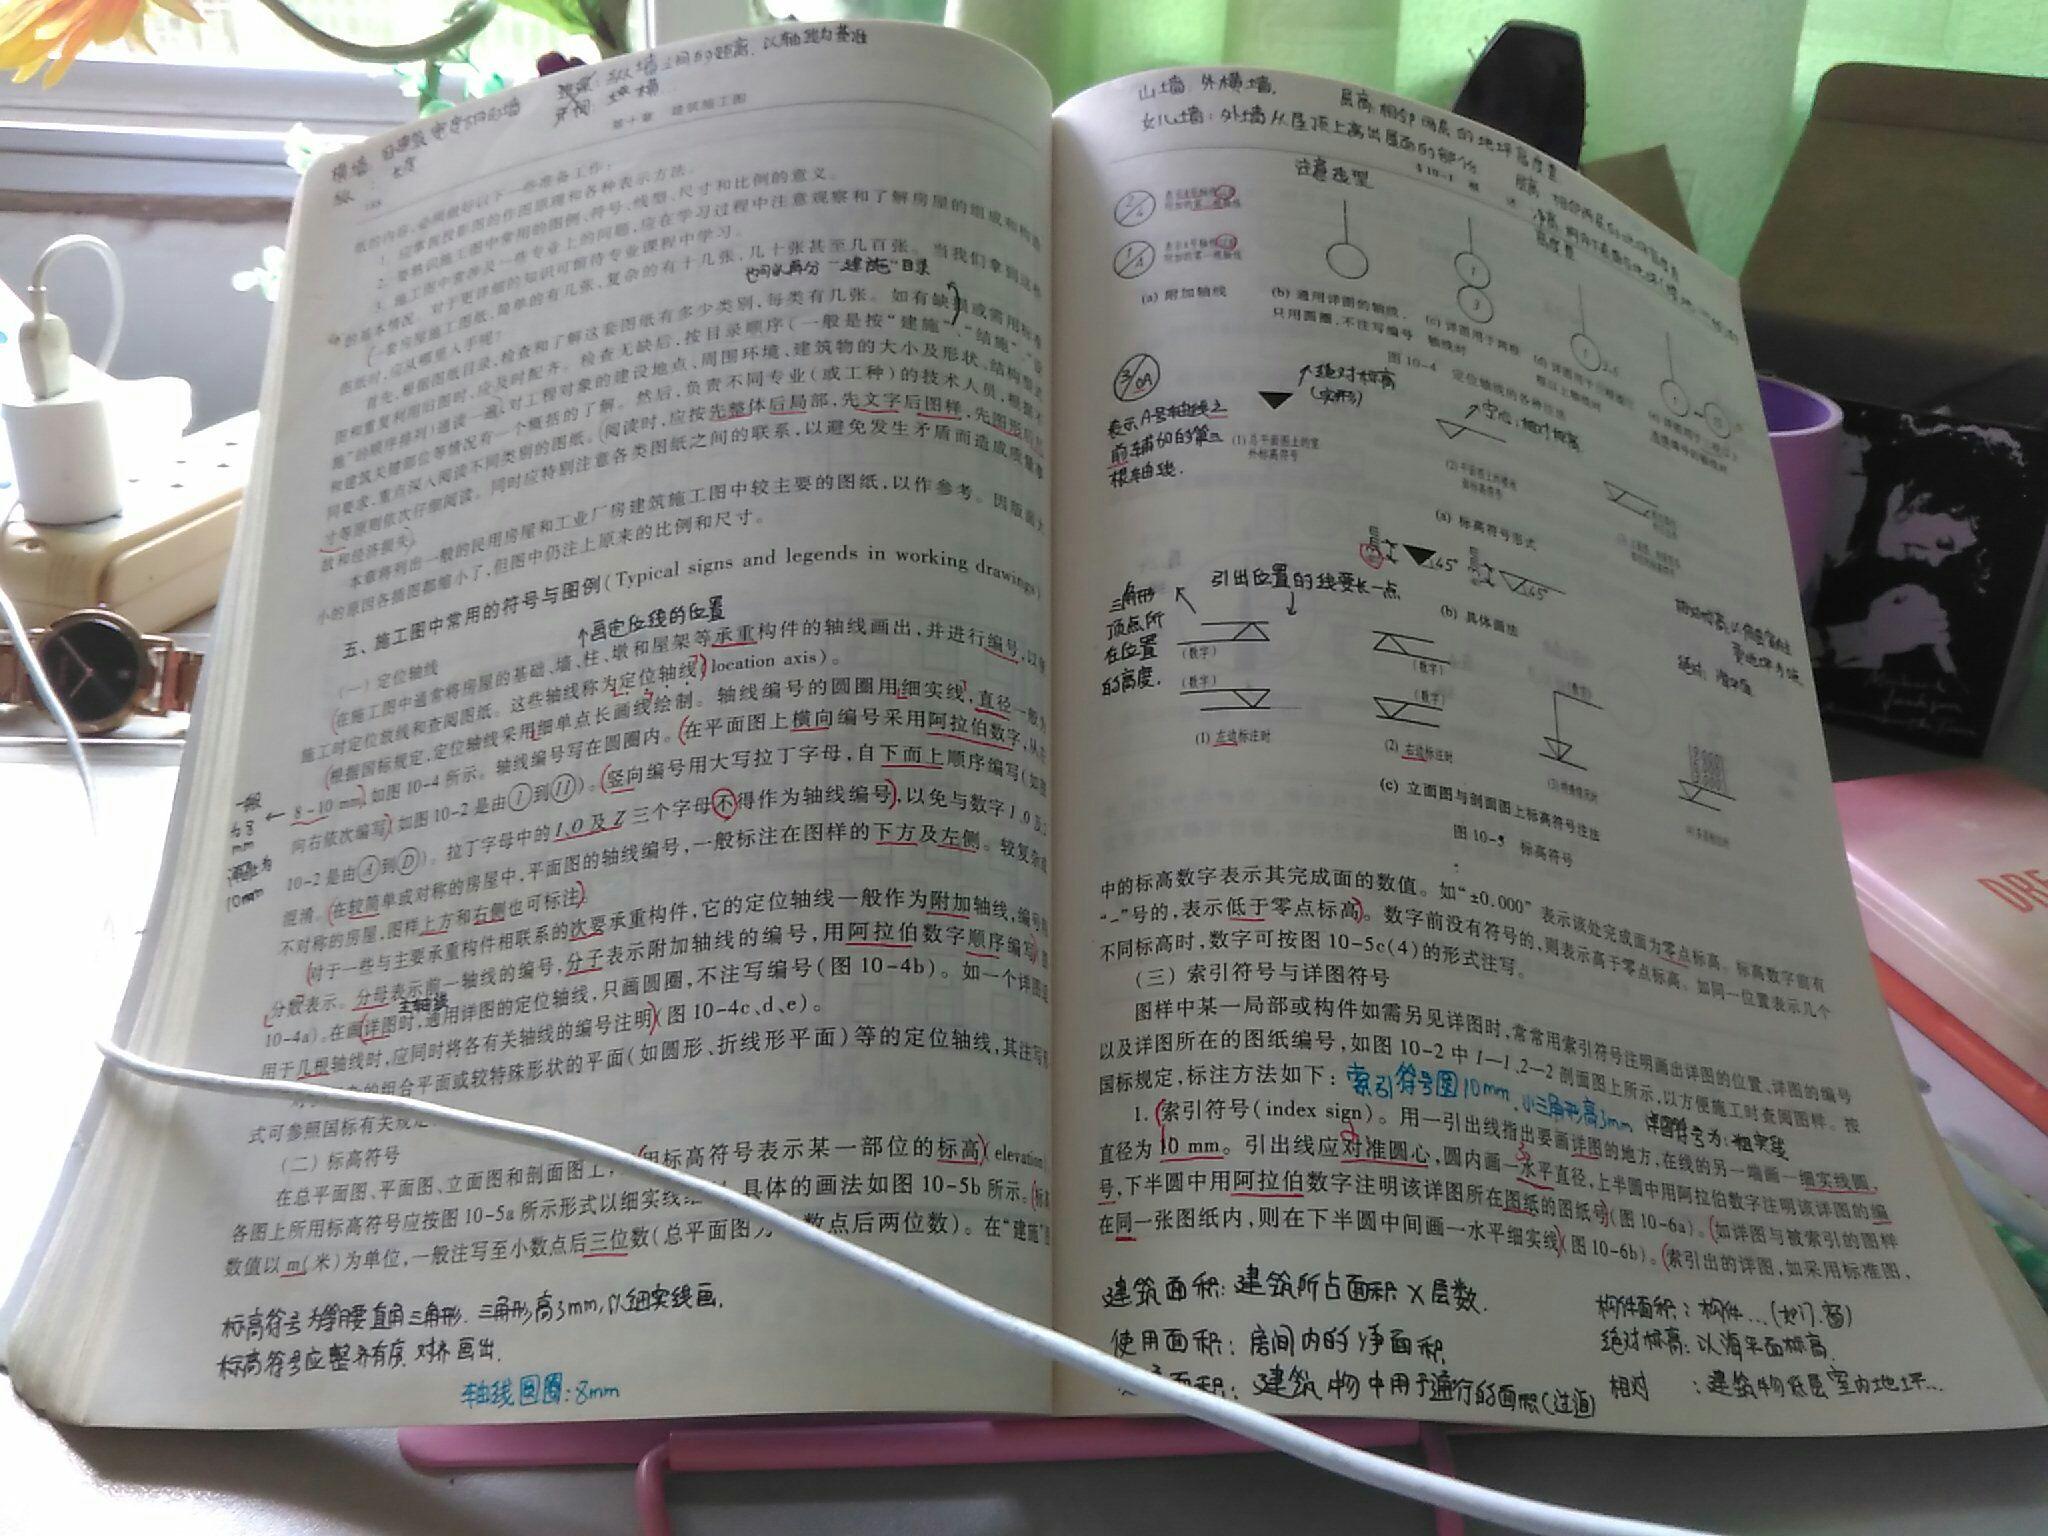 横墙: 沿建筑宽度方向的墙
纵 : 长度
进深: 纵墙之间的距离. 以轴线为基准
开间: 横
第十章 建筑施工图
188
纸的内容,必须做好以下一些准备工作:
1. 应掌握投影图的作图原理和各种表示方法。
2. 要熟识施工图中常用的图例、符号、线型、尺寸和比例的意义。
3. 施工图中常涉及一些专业上的问题,应在学习过程中注意观察和了解房屋的组成和构造
的基本情况 对于更详细的知识可留待专业课程中学习。
也可以再分“建施”目录
(一套房屋施工图纸,简单的有几张、复杂的有十几张,几十张甚至几百张。当我们拿到这些
图纸时,应从哪里入手呢?
首先,根据图纸目录,检查和了解这套图纸有多少类别,每类有几张。如有缺损或需用标准
图和重复利用旧图时,应及时配齐。检查无缺后,按目录顺序(一般是按“建施”、“结施”、“设
施”的顺序排列)通读一遍,对工程对象的建设地点、周围环境、建筑物的大小及形状、结构型式
和建筑关键部位等情况有一个概括的了解。然后,负责不同专业(或工种)的技术人员,根据不
同要求,重点深入阅读不同类别的图纸。(阅读时,应按先整体后局部,先文字后图样,先图形后尺
寸等原则依次仔细阅读。同时应特别注意各类图纸之间的联系,以避免发生矛盾而造成质量事
故和经济损失)。
本章将列出一般的民用房屋和工业厂房建筑施工图中较主要的图纸,以作参考。因版面大
小的原因各插图都缩小了,但图中仍注上原来的比例和尺寸。
五、施工图中常用的符号与图例(Typical signs and legends in working drawings)
↑画定位线的位置
(一) 定位轴线
(在施工图中通常将房屋的基础、墙、柱、墩和屋架等承重构件的轴线画出,并进行编号,以便
施工时定位放线和查阅图纸。这些轴线称为定位轴线)(location axis)。
(根据国标规定,定位轴线采用细单点长画线绘制。轴线编号的圆圈用细实线,直径一般为
一般为8mm 详图为10mm
8~10 mm),如图 10-4 所示。轴线编号写在圆圈内。(在平面图上横向编号采用阿拉伯数字,从左
向右依次编写)(如图 10-2 是由①到⑪)。(竖向编号用大写拉丁字母,自下而上顺序编写(如图
10-2 是由Ⓐ到Ⓓ)。拉丁字母中的 I、O 及 Z 三个字母不得作为轴线编号),以免与数字 1、0 及 2
混淆。(在较简单或对称的房屋中,平面图的轴线编号,一般标注在图样的下方及左侧。较复杂或
不对称的房屋,图样上方和右侧也可标注)。
(对于一些与主要承重构件相联系的次要承重构件,它的定位轴线一般作为附加轴线,编号用
分数表示。分母表示前一轴线的编号,分子表示附加轴线的编号,用阿拉伯数字顺序编写)(图
主轴线
10-4a)。在画(详图时,通用详图的定位轴线,只画圆圈,不注写编号(图 10-4b)。如一个详图适
用于几根轴线时,应同时将各有关轴线的编号注明)(图 10-4c、d、e)。
的组合平面或较特殊形状的平面(如圆形、折线形平面)等的定位轴线,其注写形
式可参照国标有关规定
(二) 标高符号
在总平面图、平面图、立面图和剖面图上, 用标高符号表示某一部位的标高)(elevation)
各图上所用标高符号应按图 10-5a 所示形式以细实线 具体的画法如图 10-5b 所示。(标高
数值以 m(米)为单位,一般注写至小数点后三位数(总平面图为 数点后两位数)。在“建施”图
标高符号为等腰直角三角形. 三角形高3mm, 以细实线画.
标高符号应整齐有序 对齐画出.
轴线圆圈: 8mm
山墙: 外横墙.
女儿墙: 外墙从屋顶上高出屋面的部分
层高: 相邻两层的地坪高度差
§10-1 概 述
注意造型
2/4 表示4号轴线之后附加的第二根轴线
1/A 表示A号轴线之后附加的第一根轴线
(a) 附加轴线
(b) 通用详图的轴线,
只用圆圈,不注写编号
1
3
(c) 详图用于两根
轴线时
(d) 详图用于三根或三
根以上轴线时
图 10-4 定位轴线的各种注法
3/0A
表示A号轴线之
前附加的第三
根轴线.
↑绝对标高
(实形)
(1) 总平面图上的室
外标高符号
空心: 相对标高
(2) 平面图上的楼地
面标高符号
(a) 标高符号形式
3mm
45°
45°
(b) 具体画法
三角形
顶点所
在位置
的高度.
引出位置的线要长一点
(数字)
(数字)
(数字)
(数字)
(数字)
(1) 左边标注时
(2) 右边标注时
(3) 特殊情况时
(c) 立面图与剖面图上标高符号注法
图 10-5 标高符号
中的标高数字表示其完成面的数值。如“±0.000”表示该处完成面为零点标高。标高数字前有
“-”号的,表示低于零点标高)。数字前没有符号的,则表示高于零点标高。如同一位置表示几个
不同标高时,数字可按图 10-5c(4)的形式注写。
(三) 索引符号与详图符号
图样中某一局部或构件如需另见详图时,常常用索引符号注明画出详图的位置、详图的编号
以及详图所在的图纸编号,如图 10-2 中 1—1、2—2 剖面图上所示,以方便施工时查阅图样。按
国标规定,标注方法如下:
索引符号圆10mm, 小三角形高3mm 详图符号为: 粗实线
1. (索引符号(index sign)。用一引出线指出要画详图的地方,在线的另一端画一细实线圆,
直径为 10 mm。引出线应对准圆心,圆内画一水平直径,上半圆中用阿拉伯数字注明该详图的编
号,下半圆中用阿拉伯数字注明该详图所在图纸的图纸号)(图 10-6a)。(如详图与被索引的图样
在同一张图纸内,则在下半圆中间画一水平细实线)(图 10-6b)。(索引出的详图,如采用标准图,
建筑面积: 建筑所占面积×层数.
使用面积: 房间内的净面积.
面积: 建筑物中用于通行的面积(过道)
构件面积: 构件...(如门.窗)
绝对标高: 以海平面标高.
相对 : 建筑物底层室内地坪...